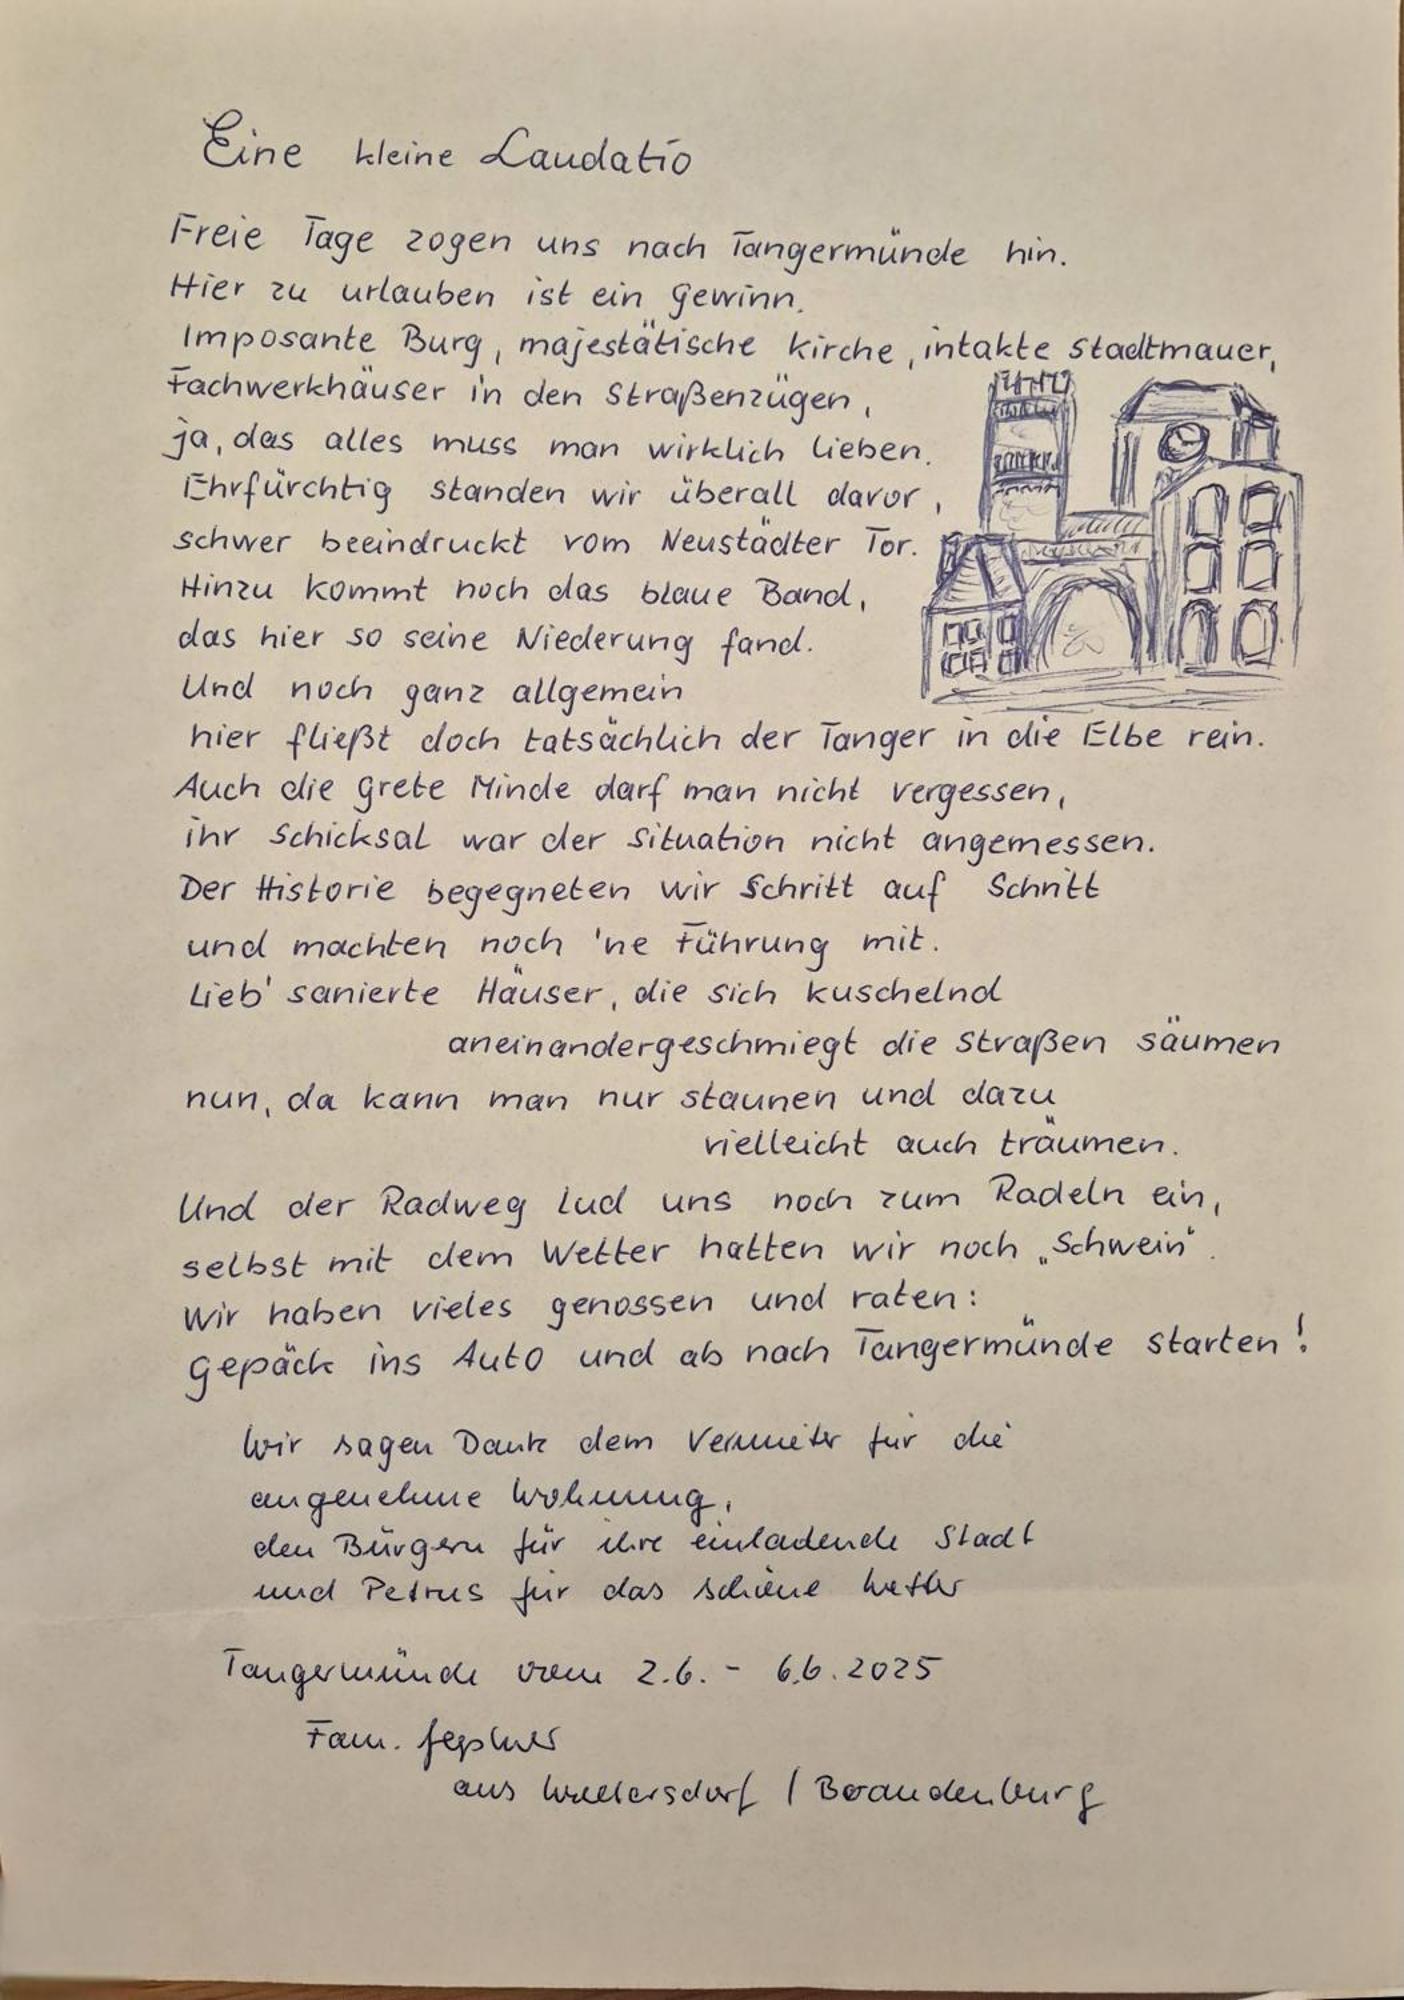 Eine kleine Laudatio
Freie Tage zogen uns nach Tangermünde hin.
Hier zu urlauben ist ein Gewinn.
Imposante Burg, majestätische Kirche, intakte Stadtmauer,
Fachwerkhäuser in den Straßenzügen,
ja, das alles muss man wirklich lieben.
Ehrfürchtig standen wir überall davor,
schwer beeindruckt vom Neustädter Tor.
Hinzu kommt noch das blaue Band,
das hier so seine Niederung fand.
Und noch ganz allgemein
hier fließt doch tatsächlich der Tanger in die Elbe rein.
Auch die Grete Minde darf man nicht vergessen,
ihr Schicksal war der Situation nicht angemessen.
Der Historie begegneten wir Schritt auf Schritt
und machten noch 'ne Führung mit.
Lieb' sanierte Häuser, die sich kuschelnd
aneinandergeschmiegt die Straßen säumen
nun, da kann man nur staunen und dazu
vielleicht auch träumen.
Und der Radweg lud uns noch zum Radeln ein,
selbst mit dem Wetter hatten wir noch „Schwein".
Wir haben vieles genossen und raten:
Gepäck ins Auto und ab nach Tangermünde starten!
Wir sagen Dank dem Vermieter für die
angenehme Wohnung,
den Bürgern für ihre einladende Stadt
und Petrus für das schöne Wetter
Tangermünde vom 2.6. - 6.6.2025
Fam.
aus / Brandenburg